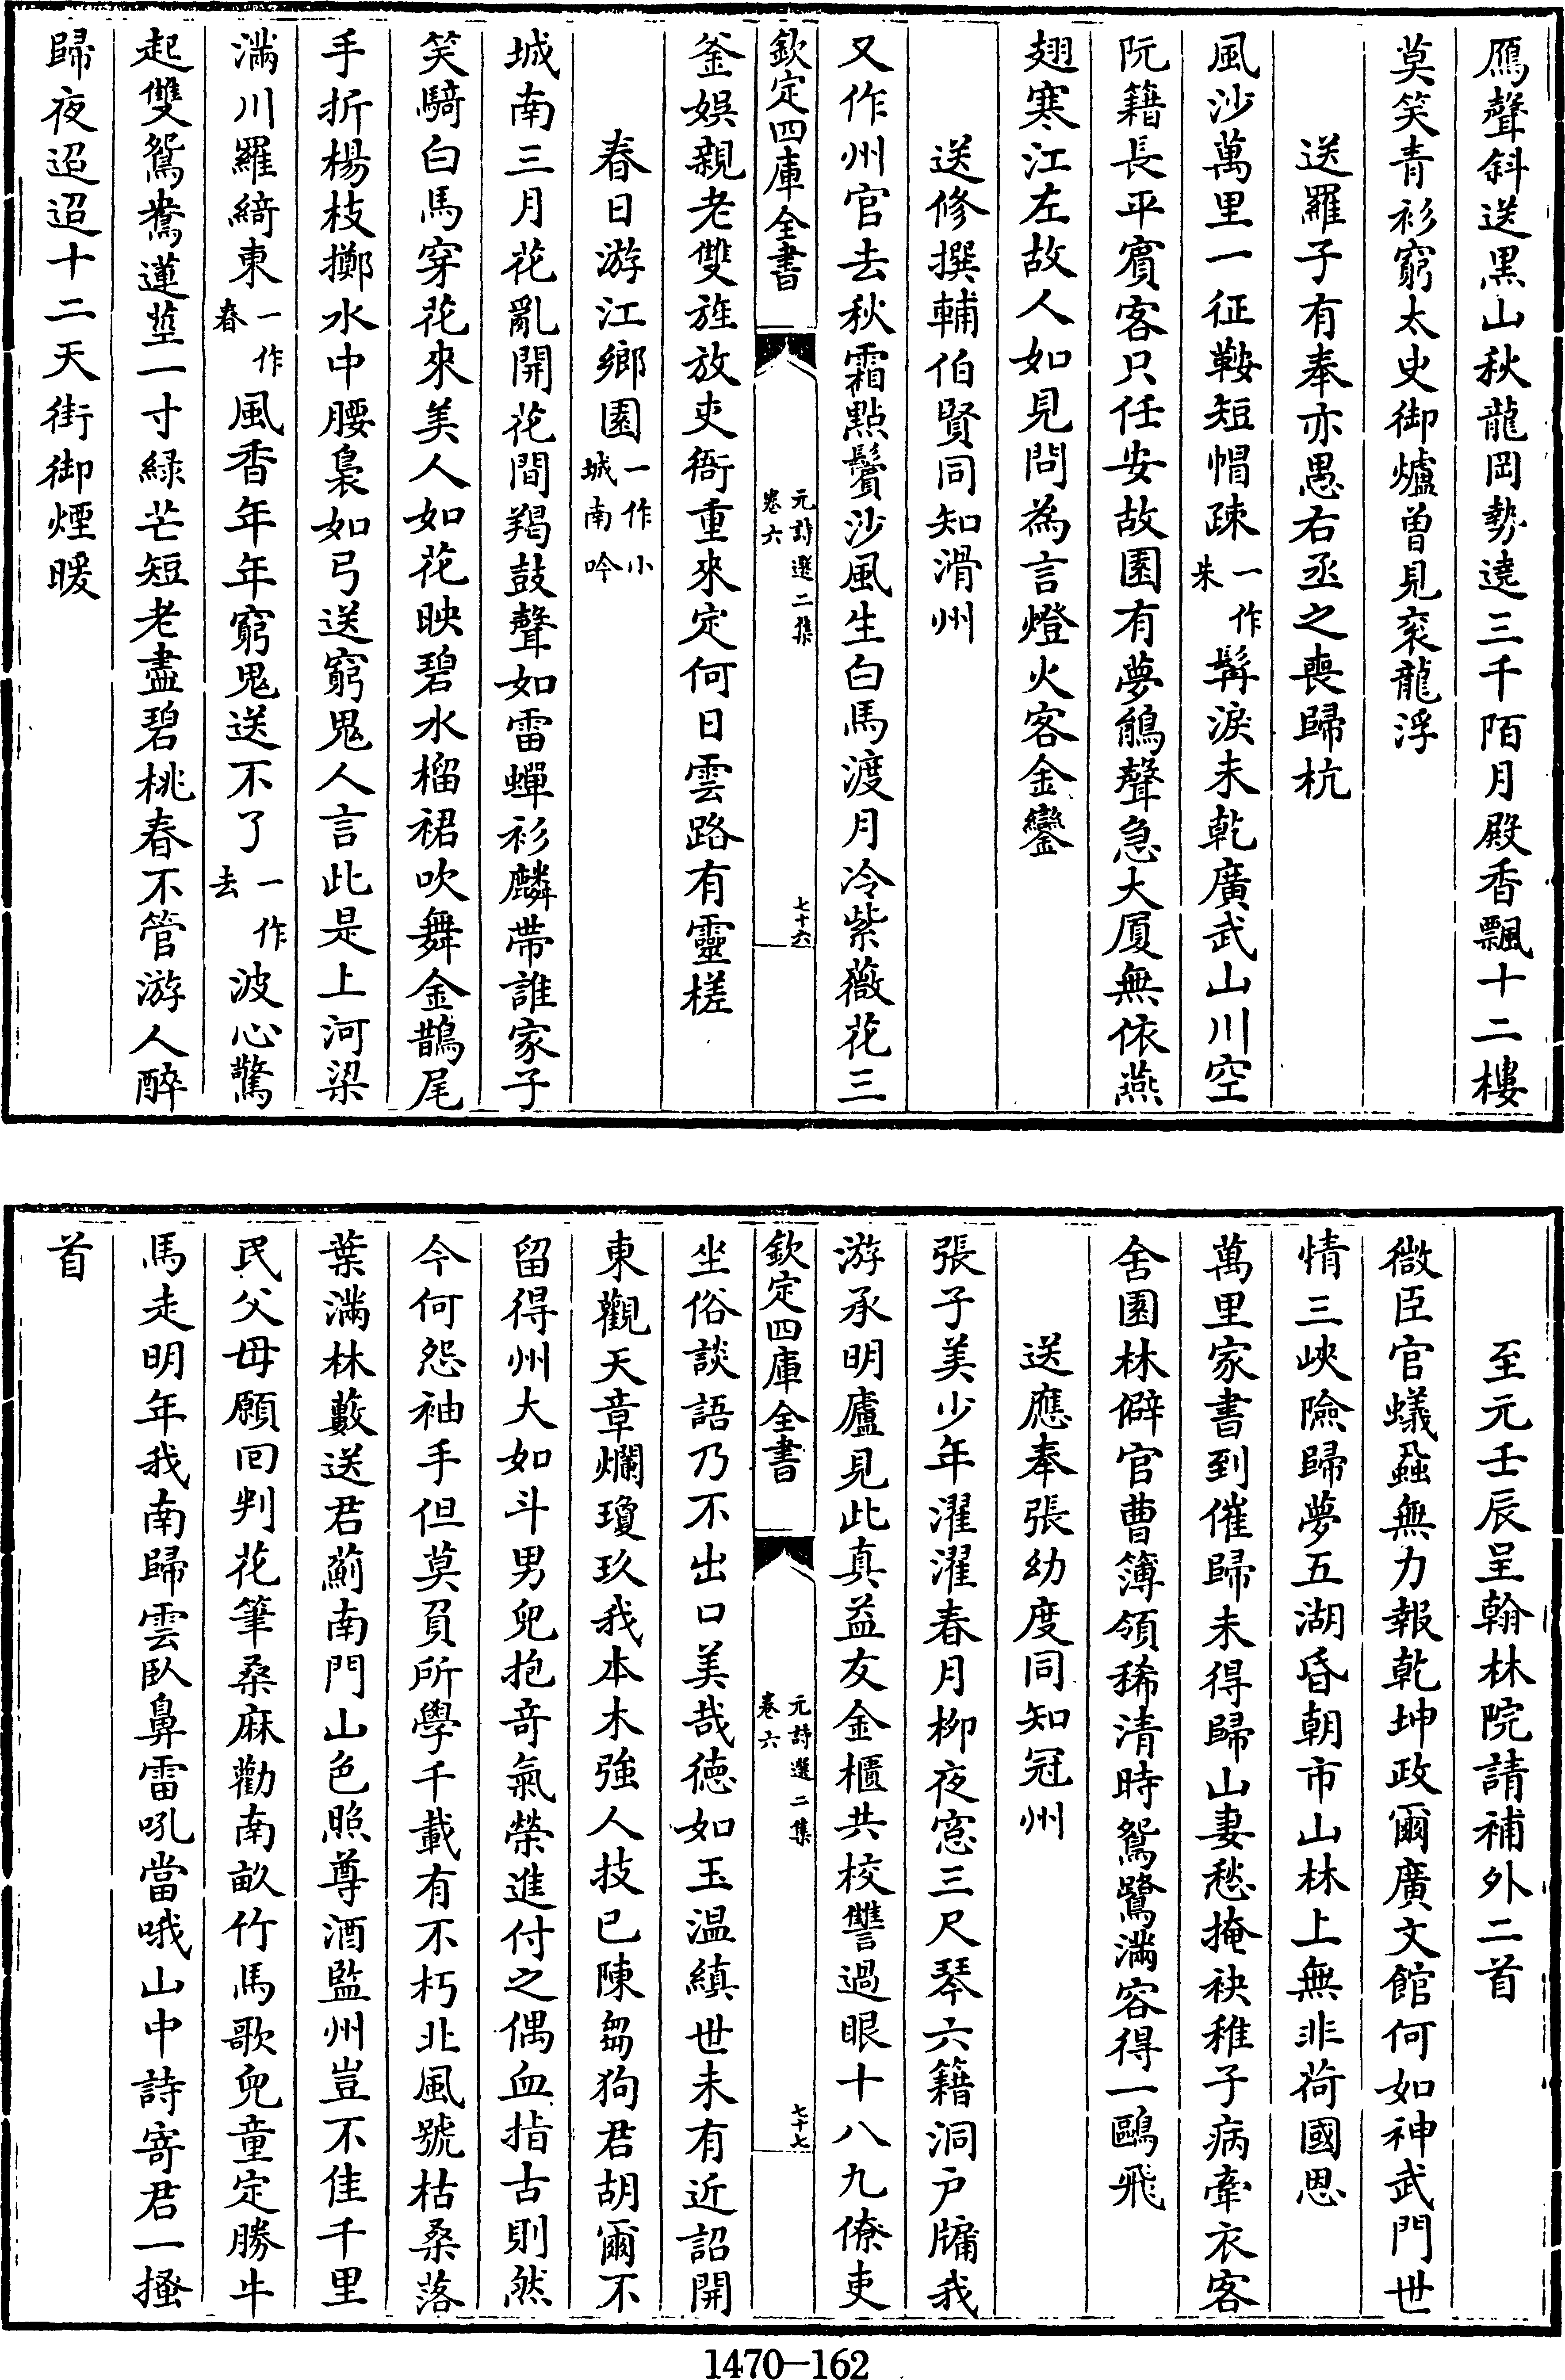 鴈聲斜送黑山秋龍岡勢遶三千陌月殿香飄十二樓
莫笑青衫窮太史御爐曽見衮龍浮
送羅子有奉亦愚右丞之喪歸杭
風沙萬里一征鞍短㡌疎一作朱髯淚未乾廣武山川空
阮籍長平賓客只任安故園有夢鵑聲急大厦無依燕
翅寒江左故人如見問為言燈火客金鑾
送修撰輔伯賢同知滑州
又作州官去秋霜點鬢沙風生白馬渡月冷紫薇花三
欽定四庫全書
元詩選二集
卷六
七十六
釜娛親老雙旌放吏衙重來定何日雲路有靈槎
春日游江鄉園一作小城南吟
城南三月花亂開花間羯鼓聲如雷蟬衫麟帶誰家子
笑騎白馬穿花來美人如花映碧水榴裙吹舞金鵲尾
手折楊枝擲水中腰裊如弓送窮鬼人言此是上河梁
滿川羅綺東一作春風香年年窮鬼送不了一作去波心驚
起雙鴛鴦蓮塋一寸緑芒短老盡碧桃春不管游人醉
歸夜迢迢十二天街御煙暖
至元壬辰呈翰林院請補外二首
微臣官蟻蝨無力報乾坤政爾廣文館何如神武門世
情三峽險歸夢五湖昏朝市山林上無非荷國恩
萬里家書到催歸未得歸山妻愁掩袂稚子病牽衣客
舍園林僻官曹簿領稀清時鴛鷺滿容得一鷗飛
送應奉張幼度同知冠州
張子美少年濯濯春月柳夜窓三尺琴六籍洞户牖我
游承明廬見此真益友金櫃共校讐過眼十八九僚吏
欽定四庫全書
元詩選二集
卷六
七十七
坐俗談語乃不出口美哉徳如玉温縝世未有近詔開
東觀天章爛瓊玖我本木強人技已陳芻狗君胡爾不
留得州大如斗男兒抱奇氣榮進付之偶血指古則然
今何怨袖手但莫負所學千載有不朽北風號枯桑落
葉滿林藪送君薊南門山色照尊酒監州豈不佳千里
民父母願回判花筆桑麻勸南畝竹馬歌兒童定勝牛
馬走明年我南歸雲臥鼻雷吼當哦山中詩寄君一搔
首
1470—162